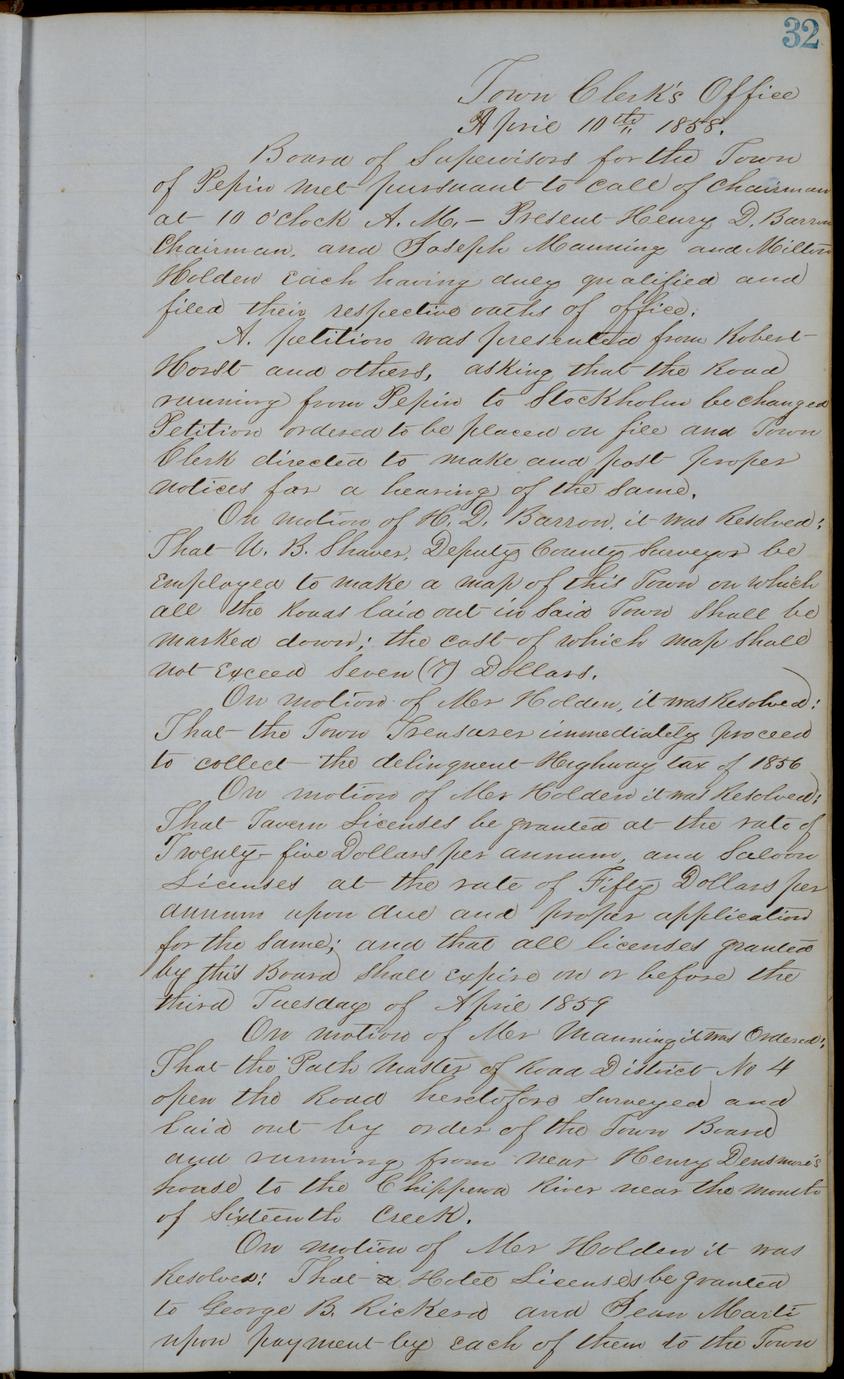 32
Town Clerk's Office
April 10th, 1858.
Board of Supervisors for the Town
of Pepin met pursuant to call of Chairman
at 10 o'clock A. M. – Present Henry D. Barron
Chairman, and Joseph Manning and Milton
Holden each having duly qualified and
filed their respective oaths of office.
A. petition was presented from Robert
Horst and others, asking that the Road
running from Pepin to Stockholm be changed
Petition ordered to be placed on file and Town
Clerk directed to make and post proper
notices for a hearing of the same.
On motion of H. D. Barron, it was Resolved:
That U. B. Shaver, Deputy County Surveyor be
employed to make a map of this Town on which
all the Roads laid out in said Town shall be
marked down; the cost of which map shall
not Exceed Seven (7) Dollars.
On motion of Mr Holden, it was Resolved:
That the Town Treasurer immediately proceed
to collect the delinquent Highway tax of 1856
On motion of Mr Holden it was Resolved:
That Tavern Licenses be granted at the rate of
Twenty-five Dollars per annum, and Saloon
Licenses at the rate of Fifty Dollars per
annum upon due and proper application
for the same; and that all licenses granted
by this Board shall expire on or before the
third Tuesday of April 1859
On motion of Mr Manning it was Ordered:
That the Path Master of Road District No 4
open the Road heretofore surveyed and
laid out by order of the Town Board
and running from near Henry Densmore's
house to the Chippewa River near the mouth
of Sixteenth Creek.
On motion of Mr Holden it was
Resolved: That a Hotel Licenses be granted
to George B. Rickerd and Jean Marti
upon payment by each of them to the Town